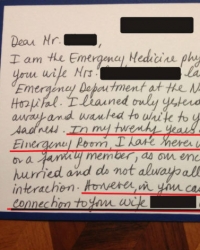 Dear Mr. ,
I am the Emergency Medicine phy
your wife Mrs. la
Emergency Department at the N
Hospital. I learned only yesterd
away and wanted to write to y
sadness. In my twenty years
Emergency Room, I have never w
or a family member, as our enc
hurried and do not always all
interaction. However, in you ca
connection to your wife